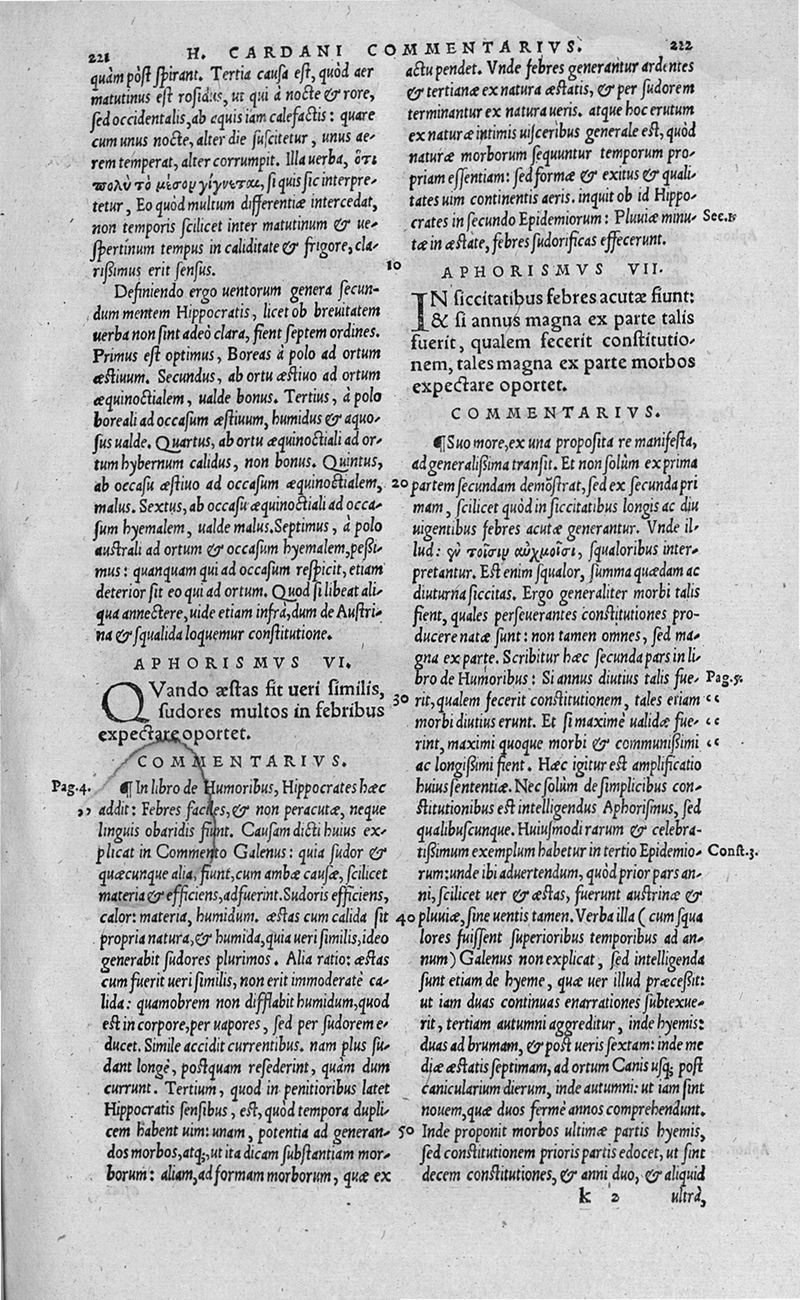 221 H. CARDANI COMMENTARIVS. 222
quàm pòst spirant. Tertia causa est, quòd aer
matutinus est rosidus, ut qui à nocte & rore,
sed occidentalis, ab aquis iam calefactis: quare
cum unus nocte, alter die suscitetur, unus ae-
rem temperat, alter corrumpit. Illa uerba, ὅτι
πολὺ τὸ μέσον γίγνεται, si quis sic interpre-
tetur, Eo quòd multum differentiæ intercedat,
non temporis scilicet inter matutinum & ue-
spertinum tempus in caliditate & frigore, cla-
rißimus erit sensus.
Definiendo ergo uentorum genera secun-
dum mentem Hippocratis, licet ob breuitatem
uerba non sint adeò clara, fient septem ordines.
Primus est optimus, Boreas à polo ad ortum
æstiuum. Secundus, ab ortu æstiuo ad ortum
æquinoctialem, ualde bonus. Tertius, à polo
boreali ad occasum æstiuum, humidus & aquo-
sus ualde. Quartus, ab ortu æquinoctiali ad or-
tum hybernum calidus, non bonus. Quintus,
ab occasu æstiuo ad occasum æquinoctialem,
malus. Sextus, ab occasu æquinoctiali ad occa-
sum hyemalem, ualde malus. Septimus, à polo
australi ad ortum & occasum hyemalem, peßi-
mus: quanquam qui ad occasum respicit, etiam
deterior sit eo qui ad ortum. Quod si libeat ali-
qua annectere, uide etiam infrà, dum de Austri-
na & squalida loquemur constitutione.
APHORISMVS VI.
QVando æstas fit ueri similis,
sudores multos in febribus
expectare oportet.
COMMENTARIVS.
Pag.4. ¶ In libro de Humoribus, Hippocrates hæc
,, addit: Febres faciles, & non peracutæ, neque
linguis obaridis fiunt. Causam dicti huius ex-
plicat in Commento Galenus: quia sudor &
quæcunque alia, fiunt, cum ambæ causæ, scilicet
materia & efficiens, adfuerint. Sudoris efficiens,
calor: materia, humidum. æstas cum calida sit
propria natura, & humida, quia ueri similis, ideo
generabit sudores plurimos. Alia ratio: æstas
cum fuerit ueri similis, non erit immoderatè ca-
lida: quamobrem non difflabit humidum, quod
est in corpore, per uapores, sed per sudorem e-
ducet. Simile accidit currentibus. nam plus su-
dant longè, postquam resederint, quàm dum
currunt. Tertium, quod in penitioribus latet
Hippocratis sensibus, est, quòd tempora dupli-
cem habent uim: unam, potentia ad generan-
dos morbos, atq;, ut ita dicam substantiam mor-
borum: aliam, ad formam morborum, quæ ex
actu pendet. Vnde febres generantur ardentes
& tertianæ ex natura æstatis, & per sudorem
terminantur ex natura ueris. atque hoc erutum
ex naturæ intimis uisceribus generale est, quòd
naturæ morborum sequuntur temporum pro-
priam essentiam: sed formæ & exitus & quali-
tates uim continentis aeris. inquit ob id Hippo-
crates in secundo Epidemiorum: Pluuiæ minu- Sec.1.
tæ in æstate, febres sudorificas effecerunt.
10 APHORISMVS VII.
IN siccitatibus febres acutæ fiunt:
& si annus magna ex parte talis
fuerit, qualem fecerit constitutio-
nem, tales magna ex parte morbos
expectare oportet.
COMMENTARIVS.
¶ Suo more, ex una proposita re manifesta,
ad generalißima transit. Et non solùm ex prima
20 partem secundam demõstrat, sed ex secunda pri
mam, scilicet quòd in siccitatibus longis ac diu
uigentibus febres acutæ generantur. Vnde il-
lud: ἐν τοῖσιν αὐχμοῖσι, squaloribus inter-
pretantur. Est enim squalor, summa quædam ac
diuturna siccitas. Ergo generaliter morbi talis
fient, quales perseuerantes constitutiones pro-
ducere natæ sunt: non tamen omnes, sed ma-
gna ex parte. Scribitur hæc secunda pars in li-
bro de Humoribus: Si annus diutius talis fue- Pag.5.
30 rit, qualem fecerit constitutionem, tales etiam ‘‘
morbi diutius erunt. Et si maximè ualidæ fue- ‘‘
rint, maximi quoque morbi & communißimi ‘‘
ac longißimi fient. Hæc igitur est amplificatio
huius sententiæ. Nec solùm de simplicibus con-
stitutionibus est intelligendus Aphorismus, sed
qualibuscunque. Huiusmodi rarum & celebra-
tißimum exemplum habetur in tertio Epidemio- Const.3.
rum: unde ibi aduertendum, quòd prior pars an-
ni, scilicet uer & æstas, fuerunt austrinæ &
40 pluuiæ, sine uentis tamen. Verba illa (cum squa
lores fuissent superioribus temporibus ad an-
num) Galenus non explicat, sed intelligenda
sunt etiam de hyeme, quæ uer illud præceßit:
ut iam duas continuas enarrationes subtexue-
rit, tertiam autumni aggreditur, inde hyemis:
duas ad brumam, & post ueris sextam: inde me
diæ æstatis septimam, ad ortum Canis usq; post
canicularium dierum, inde autumni: ut iam sint
nouem, quæ duos fermè annos comprehendunt.
50 Inde proponit morbos ultimæ partis hyemis,
sed constitutionem prioris partis edocet, ut sint
decem constitutiones, & anni duo, & aliquid
k 2 ultrà,